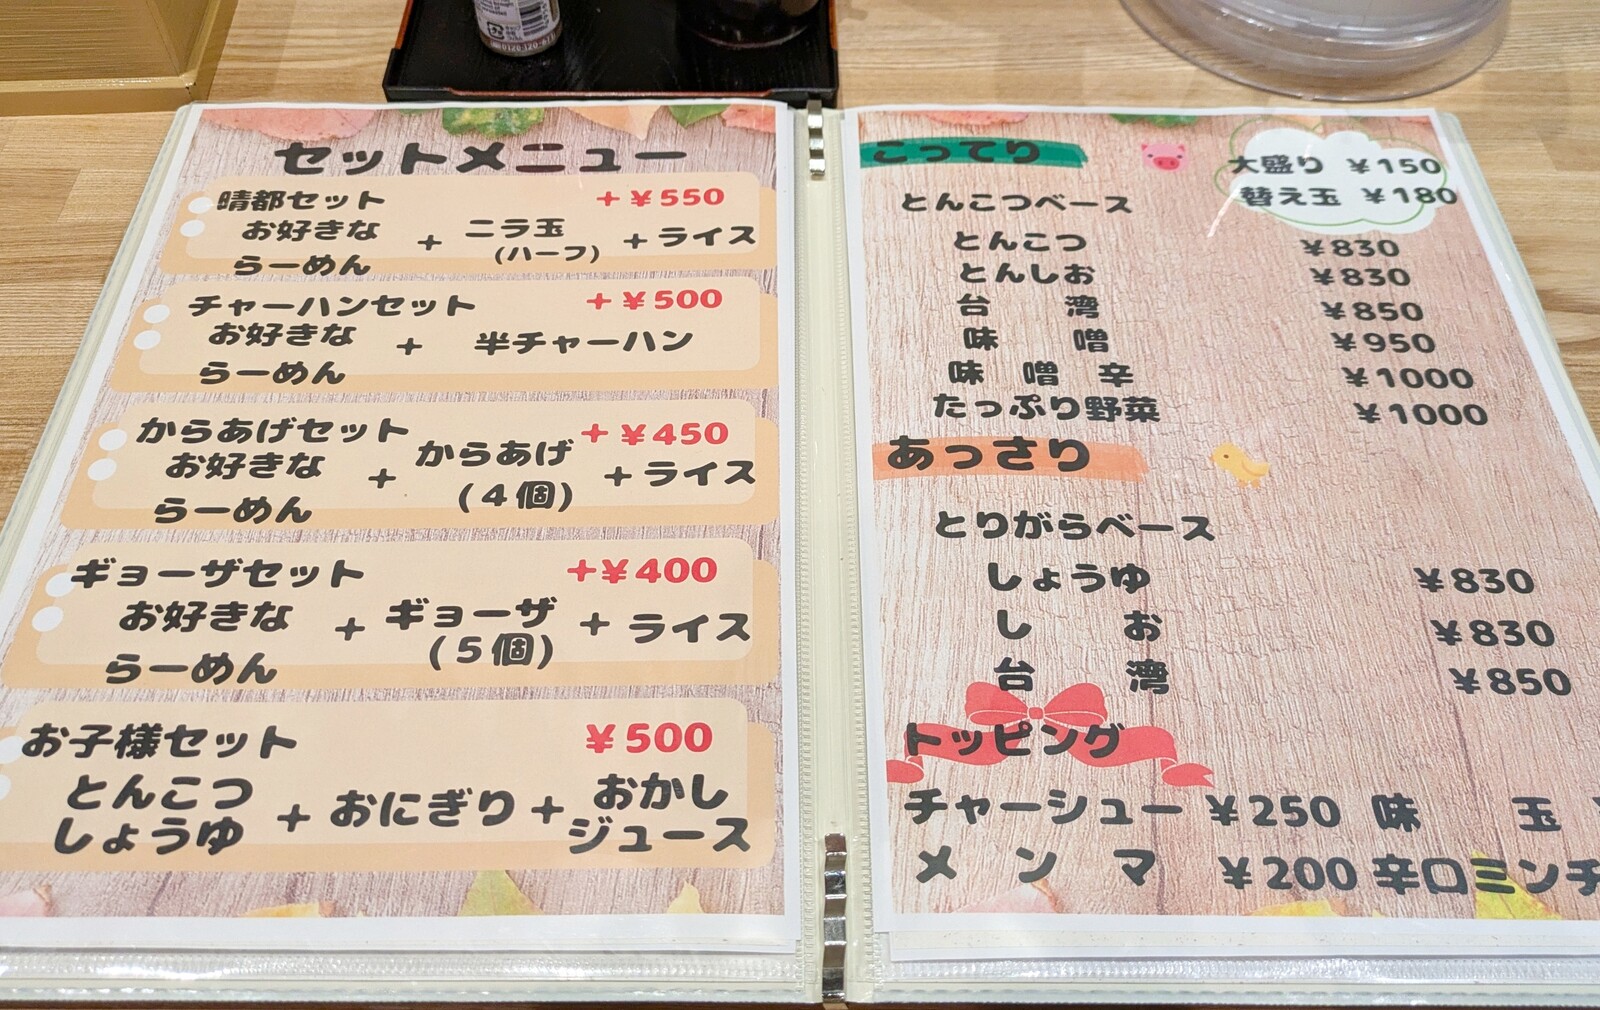 0120-120-611
セットメニュー
晴都セット +￥550
お好きならーめん + ニラ玉(ハーフ) + ライス
チャーハンセット +￥500
お好きならーめん + 半チャーハン
からあげセット +￥450
お好きならーめん + からあげ(4個) + ライス
ギョーザセット +￥400
お好きならーめん + ギョーザ(5個) + ライス
お子様セット ￥500
とんこつ しょうゆ + おにぎり + おかし ジュース
こってり
大盛り ￥150
替え玉 ￥180
とんこつベース
とんこつ ￥830
とんしお ￥830
台湾 ￥850
味噌 ￥950
味噌辛 ￥1000
たっぷり野菜 ￥1000
あっさり
とりがらベース
しょうゆ ￥830
しお ￥830
台湾 ￥850
トッピング
チャーシュー ￥250 味玉
メンマ ￥200 辛口ミンチ